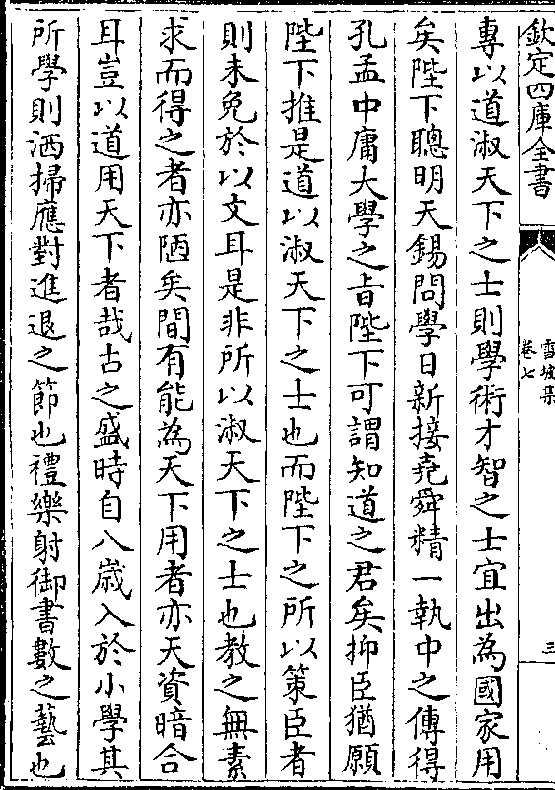 欽定四庫全書
雪坡集
卷七
三
專以道淑天下之士則學術才智之士宜出為國家用
矣陛下聰明天錫問學日新接堯舜精一執中之傳得
孔孟中庸大學之㫖陛下可謂知道之君矣抑臣猶願
陛下推是道以淑天下之士也而陛下之所以策臣者
則未免於以文耳是非所以淑天下之士也教之無素
求而得之者亦陋矣間有能為天下用者亦天資暗合
耳豈以道用天下者哉古之盛時自八歳入於小學其
所學則洒掃應對進退之節也禮樂射御書數之藝也